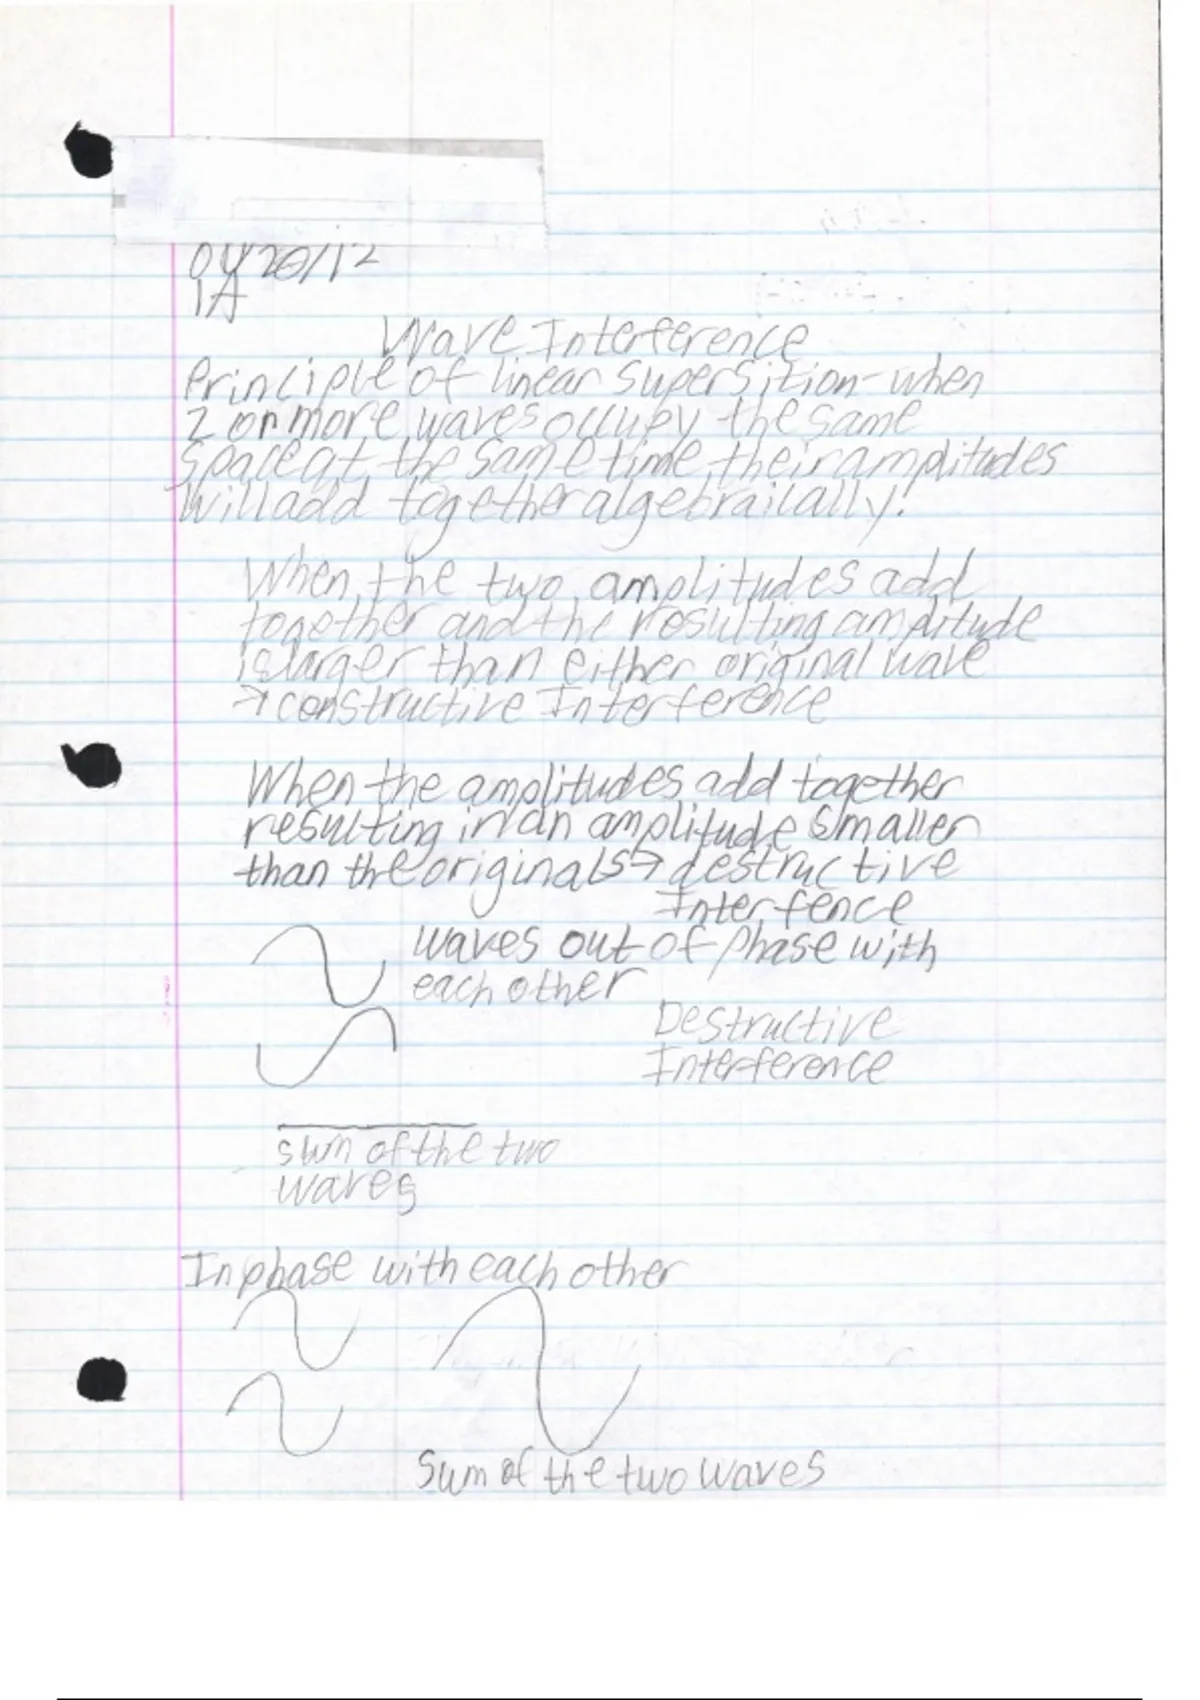 04/20/12
1A
Wave Interference
Principle of linear Supersition- when
2 or more waves occupy the same
space at the same time their amplitudes
will add together algebraically!
When the two amplitudes add
together and the resulting amplitude
is larger than either original wave
→ constructive Interference
When the amplitudes add together
resulting in an amplitude smaller
than the originals → destructive
Interfence
waves out of phase with
each other
Destructive
Interference
sum of the two
waves
In phase with each other
Sum of the two waves